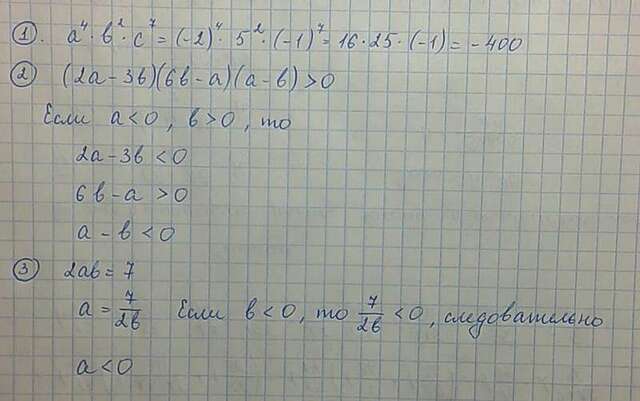 ①. a⁴·b²·c⁷ = (-2)⁴·5²·(-1)⁷ = 16·25·(-1) = -400
② (2a-3b)(6b-a)(a-b)>0
Если a<0, b>0, то
2a-3b<0
6b-a>0
a-b<0
③ 2ab=7
a = 7/2b Если b<0, то 7/2b <0, следовательно
a<0